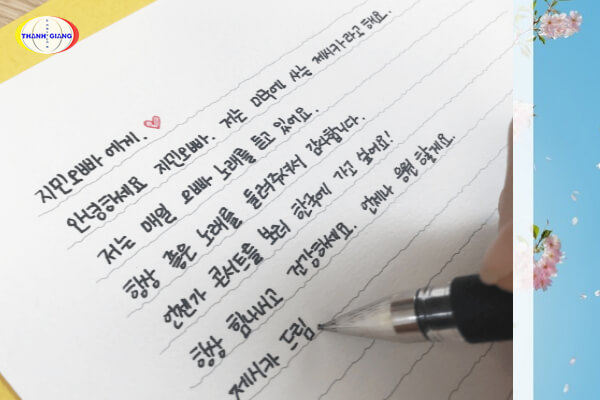 THANH GIANG
지민오빠 에게.
안녕하세요 지민오빠. 저는 미국에 사는 제시카라고 해요.
저는 매일 오빠 노래를 듣고 있어요.
항상 좋은 노래를 들려주셔서 감사합니다.
언젠가 콘서트를 보러 한국에 가고 싶어요!
항상 힘내시고 건강하세요. 언제나 응원 할게요.
제시카 드림.